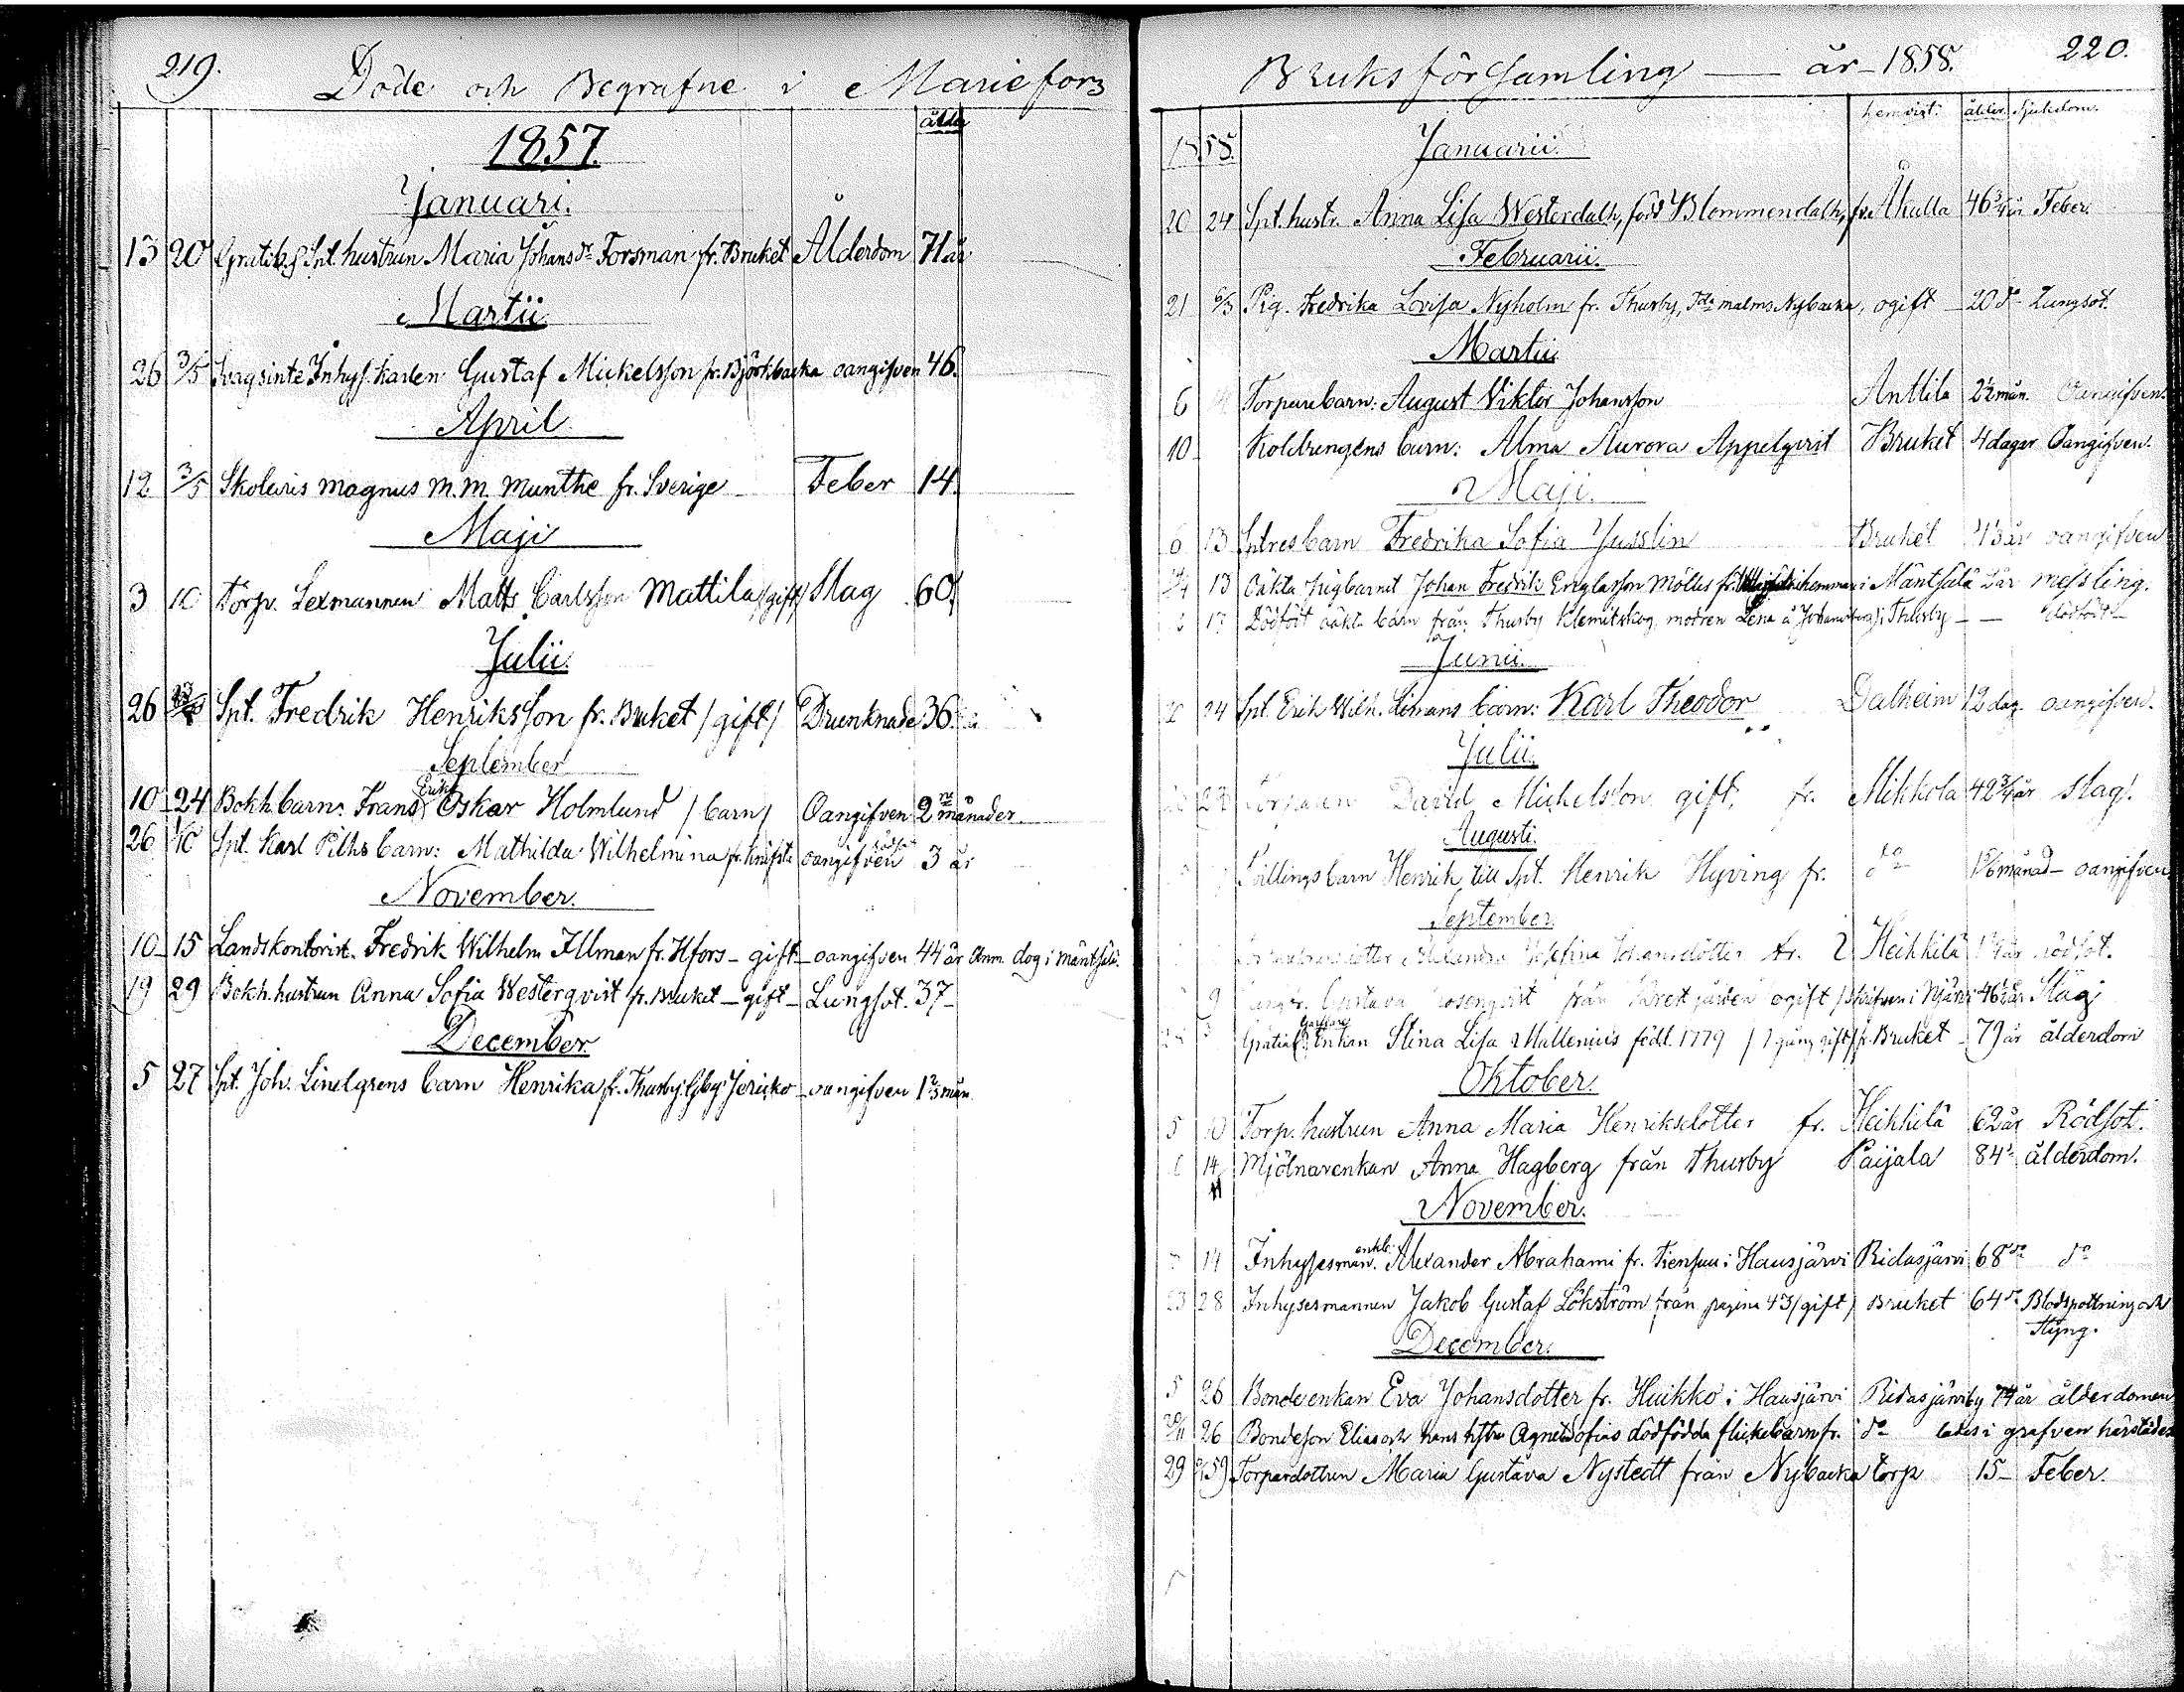 219.
Döde och Begrafne i Mariefors
ålder
1857.
Januari.
13 20 Spl. hustrun Maria Johansdr Forsman fr. Bruket Ålderdom 71 år
Martii.
26 3/5 Svagsinte Inhys. karlen Gustaf Mickelsson fr. Björkbacka oangifven 46.
April
12 3/5 Skolaris Magnus M. M. Munthe fr. Sverige Feber 14.
Maji
3 10 Torp. Sexmannen Matts Carlsson Mattila /gift/ Slag 60.
Julii.
26 Spl. Fredrik Henriksson fr. Bruket /gift/ Drunknade 36.
September
10 24 Bokh. barn: Frans Erik Oskar Holmlund /barn/ Oangifven 2ne månader.
26 1/10 Spl. Karl Pihls barn: Mathilda Wilhelmina oangifven rödsot 3 år
November.
10 15 Landskontorist. Fredrik Wilhelm Illman fr. Hfors - gift - oangifven 44 år Anm. dog i Mäntsälä.
19 29 Bokh. hustrun Anna Sofia Westerqvist fr. Bruket - gift - Lungsot. 37 -
December.
5 27 Spl. Joh. Lindgrens barn Henrika fr. Thusby Jeriko - oangifven 1 2/3 mån
220.
Bruksförsamling — år - 1858.
hemvist. ålder. Sjukdom.
1858. Januarii.
20 24 Spl. hustr. Anna Lisa Westerdalh, född Blommendalh, fr. Åkulla 46 3/4 år Feber.
Februarii.
21 6/3 Pig. Fredrika Lovisa Nyholm fr. Thusby, malms Nybacka, ogift - 20 do Lungsot.
Martii
6 14 Torparebarn: August Viktor Johansson Anttila 2 1/2 mån. Oangifven.
10 - Koldrengens barn: Alma Aurora Appelqvist Bruket 4 dagar Oangifven.
Maji.
6 13 barn Fredrika Sofia Jusslin Bruket år oangifven
13 Oäkta pigbarnet Johan Fredrik Möller fr. i Mäntsälä 2 år messling.
17 Dödfödt oäkta barn från Thusby Klemitskog, modren Lena i Thusby - — dödfödt -
Junii.
24 Spl. Erik Wilh. Limans barn: Karl Theodor Dalheim 12 dag. oangifven.
Julii.
Torparen David Michelsson gift, fr. Mikkola 42 3/4 år slag.
Augusti.
Tvillingsbarn Henrik till Spl. Henrik Hyving fr. do månad - oangifven
September.
Josefina Johansdotter fr. Heikkilä år rödsot.
9 Gustava Rosenqvist från ogift / 46 1/2 år Slag
Enkan Stina Lisa Mallenius född 1779 / gång gift/ fr. Bruket - 79 år ålderdom
Oktober.
5 10 Torp. hustrun Anna Maria Henriksdotter fr. Heikkilä 62 år Rödsot.
14 Mjölnarenkan Anna Hagberg från Thusby Paijala 84 ålderdom.
November.
14 Inhysesman. enkl. Alexander Abrahami fr. i Hausjärvi Ridasjärvi 68 do do
23 28 Inhysesmannen Jakob Gustaf Lökström från pagina 43 /gift/ Bruket 64 do Blodspottning och
Styng.
December.
5 26 Bondeenkan Eva Johansdotter fr. Huikko i Hausjärvi Ridasjärviby 74 år ålderdomen
29/11 26 Bondeson Elias och hans hstru Agneta Sofias dödfödda flickebarn fr. do lades i grafven härstädes
29 59 Torpardottren Maria Gustava Nystedt från Nybacka torp 15 - Feber.